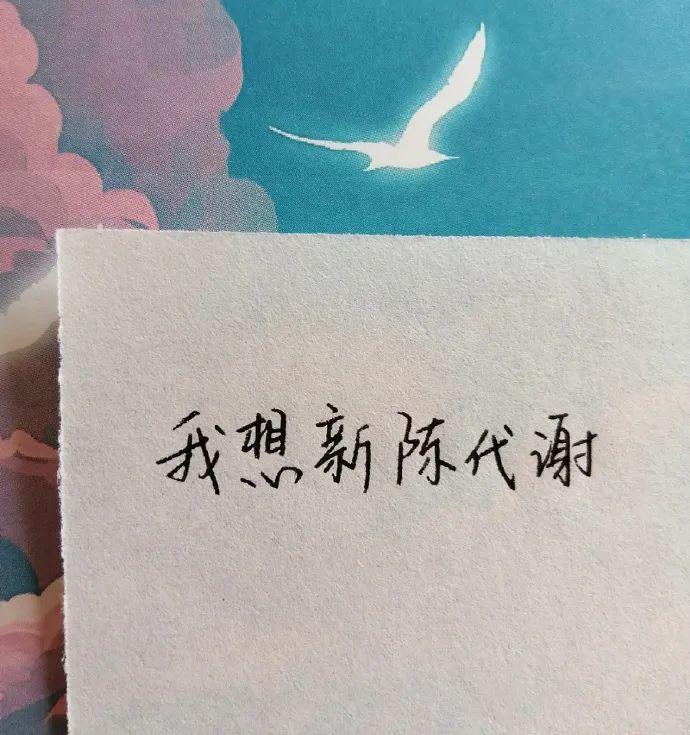 我想新陈代谢